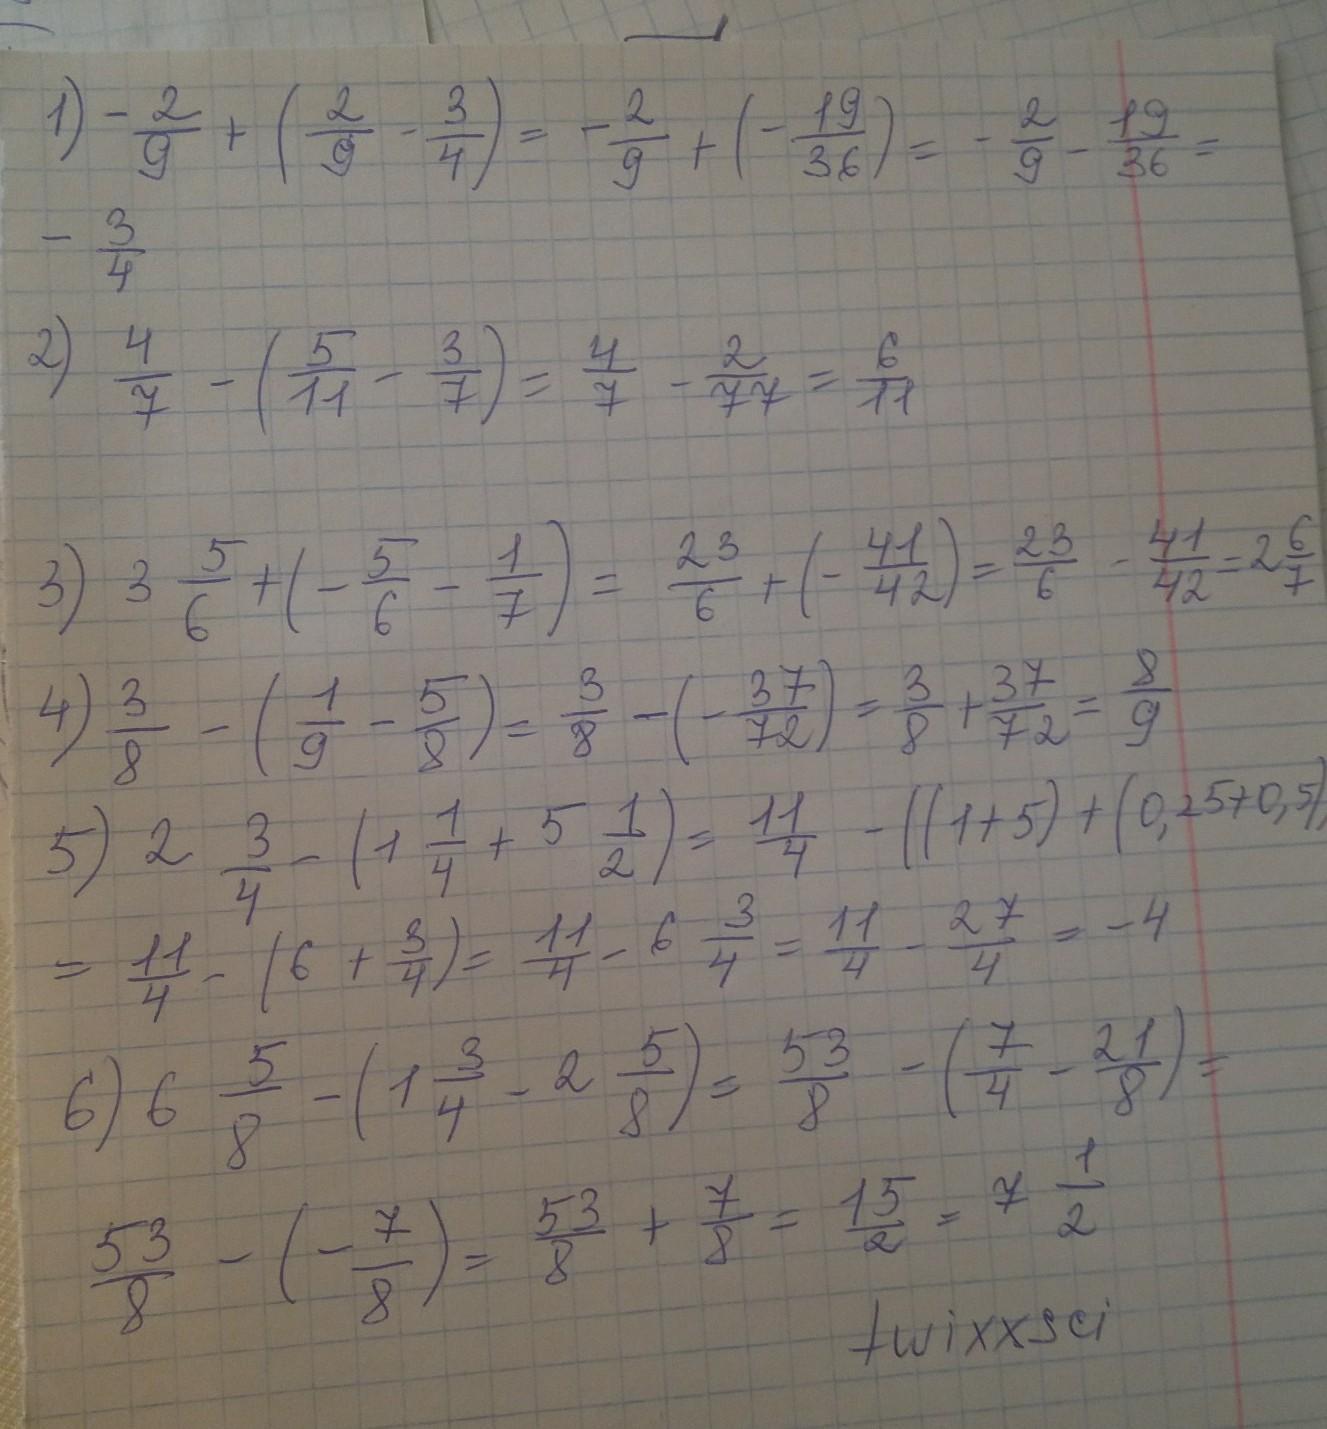 1) -2/9 + (2/9 - 3/4) = -2/9 + (-19/36) = -2/9 - 19/36 =
- 3/4
2) 4/7 - (5/11 - 3/7) = 4/7 - 2/77 = 6/11
3) 3 5/6 + (-5/6 - 1/7) = 23/6 + (-41/42) = 23/6 - 41/42 = 2 6/7
4) 3/8 - (1/9 - 5/8) = 3/8 - (-37/72) = 3/8 + 37/72 = 8/9
5) 2 3/4 - (1 1/4 + 5 1/2) = 11/4 - ((1+5) + (0,25+0,5)
= 11/4 - (6 + 3/4) = 11/4 - 6 3/4 = 11/4 - 27/4 = -4
6) 6 5/8 - (1 3/4 - 2 5/8) = 53/8 - (7/4 - 21/8) =
53/8 - (-7/8) = 53/8 + 7/8 = 15/2 = 7 1/2
twixxsci